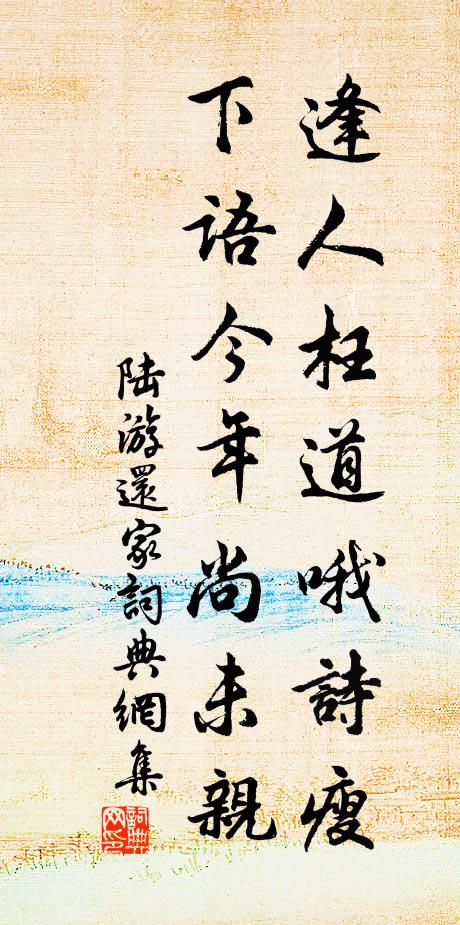 逢人枉道哦詩瘦
下語今年尚未親
陆游還家詞典網集
詞典
网印